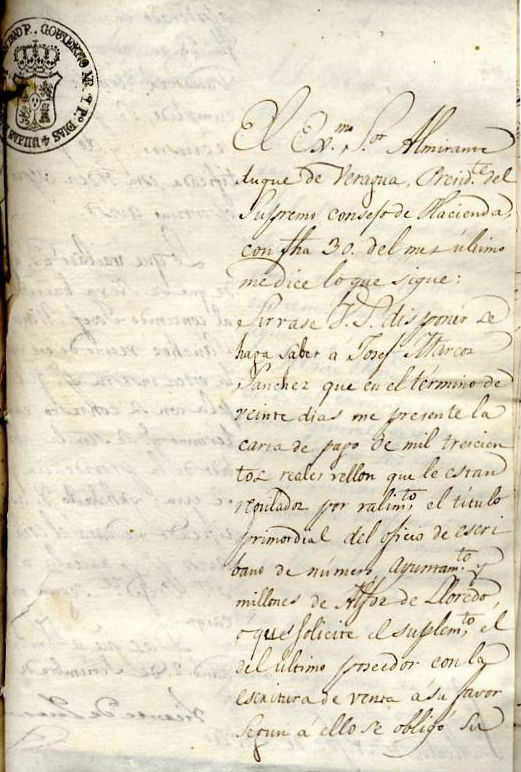 El Ex.mo S.or Almirante
duque de Veragua, Presid.te del
Supremo consejo de Hacienda,
con fha 30. del mes último
me dice lo que sigue:
Sirvase V.S. disponér se
haga saber á Josef Marcos
Sanchez que en el término de
veinte dias me presente la
carta de pago de mil trescien
tos reales vellon que le estan
regulados por valim.to, el titulo
primordial del oficio de escri
bano de número, Ayuntam.to y
millones de Alfoz de Lloredo,
o que solicite el suplem.to, el
del último poseedor con la
escritura de venta á su favor
segun á ello se obligó su